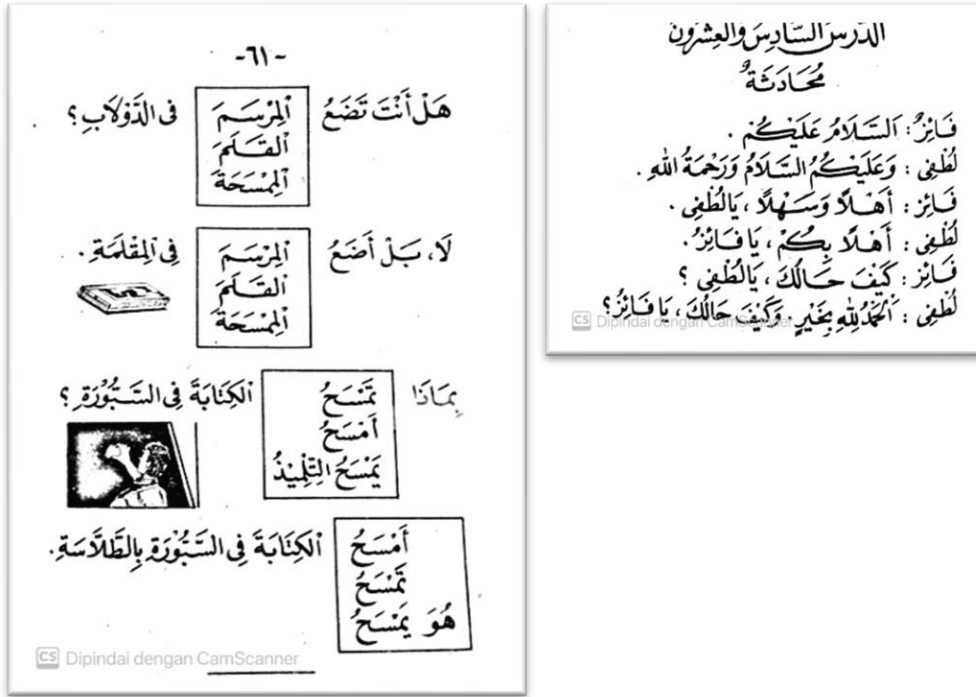 -٦١-
هَلْ أَنْتَ تَضَعُ
اَلْمِرْسَمَ
اَلْقَلَمَ
اَلْمِمْسَحَةَ
فِى الدَّوْلَابِ؟
لَا، بَلْ أَضَعُ
اَلْمِرْسَمَ
اَلْقَلَمَ
اَلْمِمْسَحَةَ
فِى الْمِقْلَمَةِ.
بِمَاذَا
تَمْسَحُ
أَمْسَحُ
يَمْسَحُ التِّلْمِيْذُ
اَلْكِتَابَةَ فِى السَّبُّوْرَةِ؟
أَمْسَحُ
تَمْسَحُ
هُوَ يَمْسَحُ
اَلْكِتَابَةَ فِى السَّبُّوْرَةِ بِالطَّلَّاسَةِ.
CS Dipindai dengan CamScanner
الدَّرْسُ السَّادِسُ وَالْعِشْرُوْنَ
مُحَادَثَةٌ
فَائِزٌ: اَلسَّلَامُ عَلَيْكُمْ.
لُطْفِى: وَعَلَيْكُمُ السَّلَامُ وَرَحْمَةُ اللهِ.
فَائِز: أَهْلًا وَسَهْلًا، يَالُطْفِى.
لُطْفِى: أَهْلًا بِكُمْ، يَا فَائِزُ.
فَائِز: كَيْفَ حَالُكَ، يَالُطْفِى؟
لُطْفِى: اَلْحَمْدُ لِلهِ بِخَيْرٍ. وَكَيْفَ حَالُكَ، يَا فَائِزُ؟
CS Dipindai dengan CamScanner